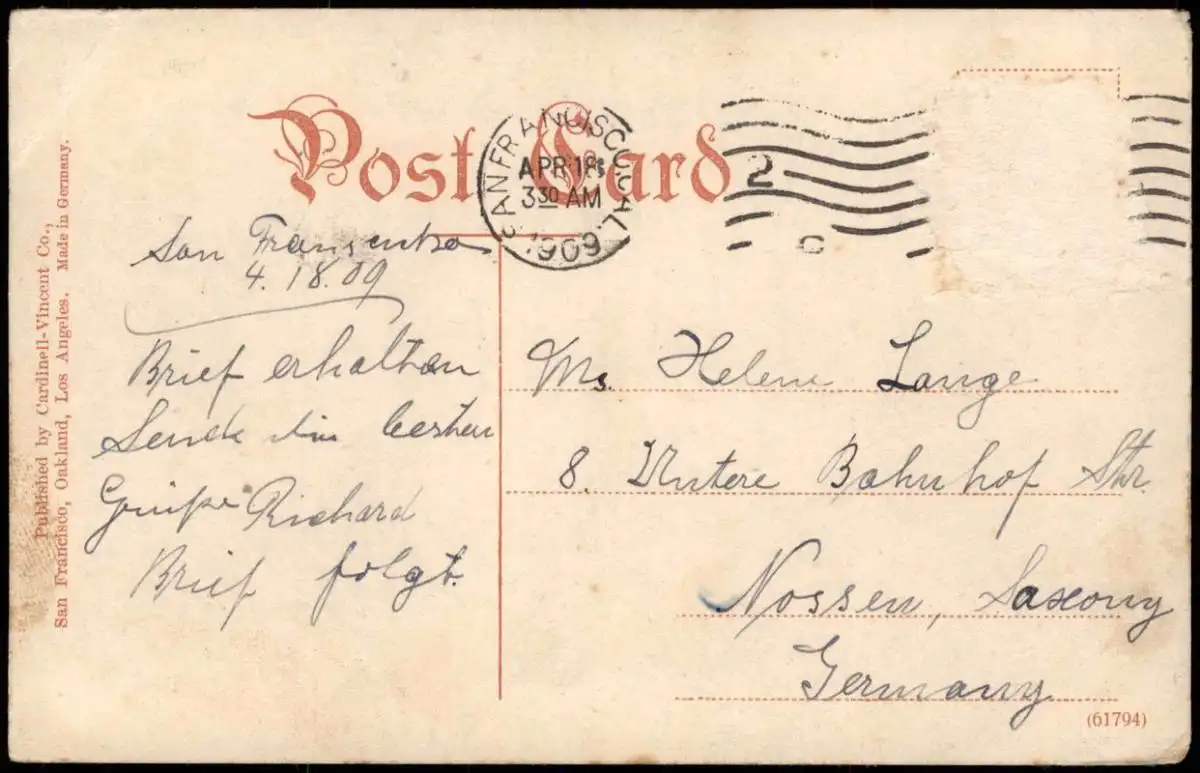 Post Card
SAN FRANCISCO, CAL.
APR 18
3 30 AM
1909
2
C
San
4. 18. 09
Brief erhalten
Sende die besten
Grüße Richard
Brief folgt.
Ms. Helene Lange
8. Untere Bahnhof Str.
Nossen, Saxony
Germany
(61794)
Published by Cardinell-Vincent Co.,
San Francisco, Oakland, Los Angeles. Made in Germany.